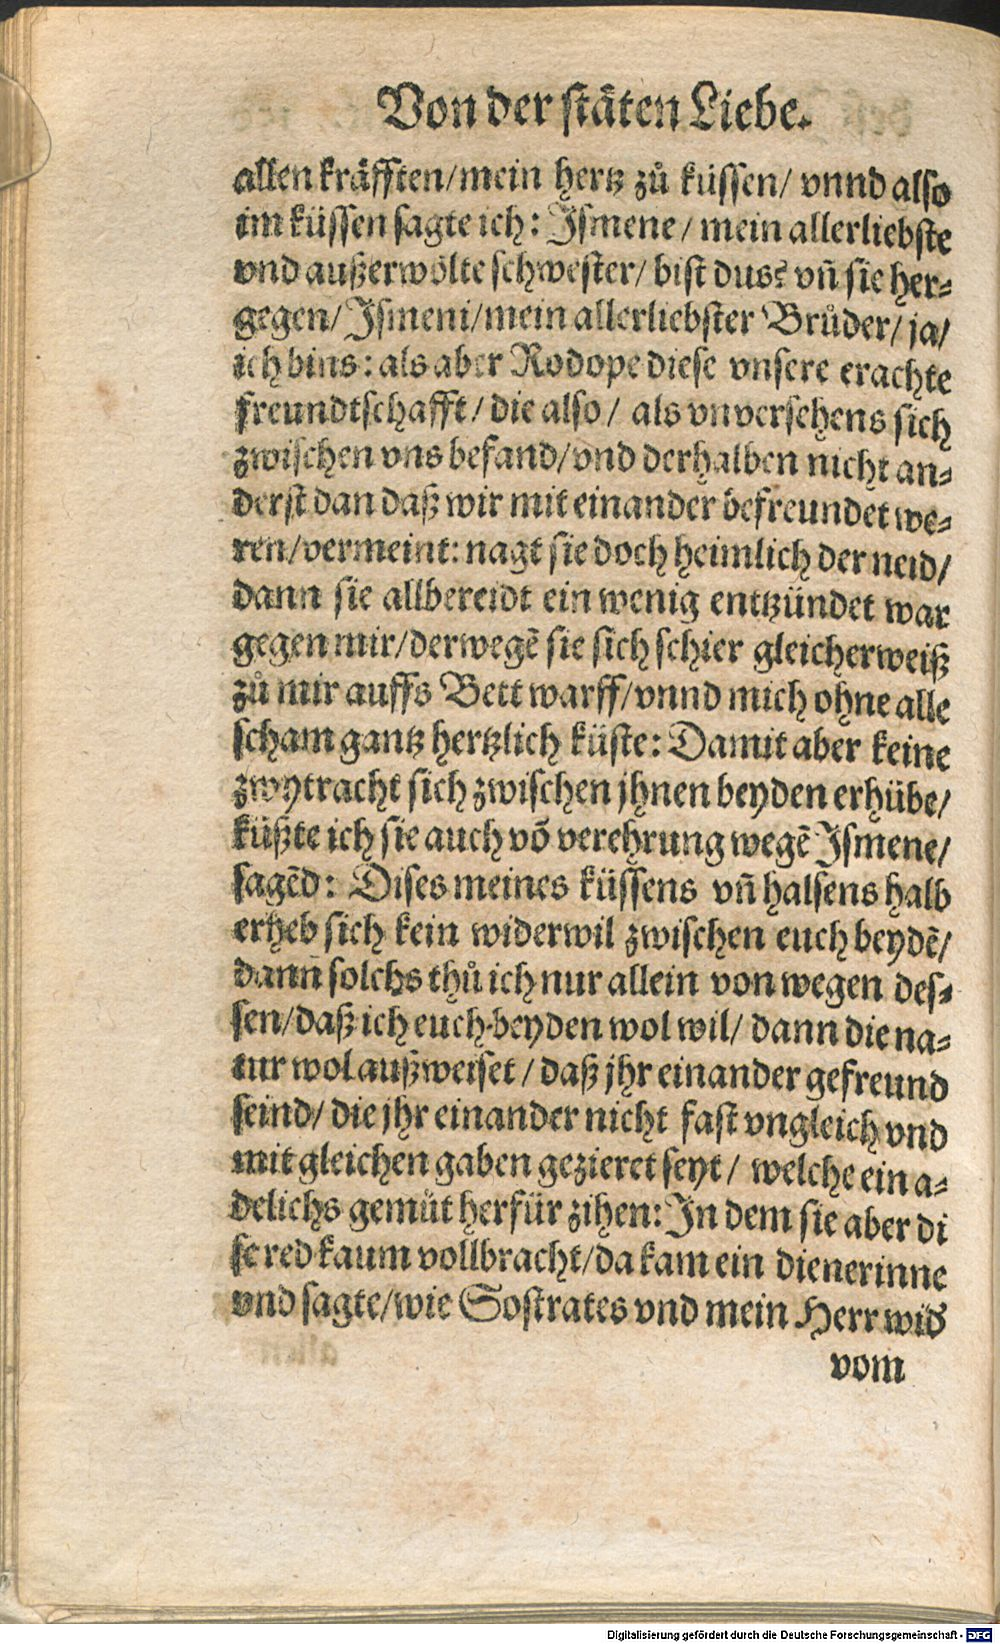 Von der stäten Liebe.
allen kräfften/mein hertz zů küssen/ vnnd also
im küssen sagte ich: Ismene/ mein allerliebste
vnd außerwölte schwester/ bist dus? vñ sie her-
gegen/ Ismeni/mein allerliebster Brůder/ ja/
ich bins: als aber Rodope diese vnsere erachte
freundtschafft/ die also/ als vnversehens sich
zwischen vns befand/vnd derhalben nicht an-
derst dan daß wir mit einander befreundet we-
ren/vermeint: nagt sie doch heimlich der neid/
dann sie allbereidt ein wenig entzündet war
gegen mir/derwegẽ sie sich schier gleicherweiß
zů mir auffs Bett warff/vnnd mich ohne alle
scham gantz hertzlich küste: Damit aber keine
zwytracht sich zwischen jhnen beyden erhübe/
küßte ich sie auch võ verehrung wegẽ Ismene/
sagẽd: Dises meines küssens vñ halsens halb
erheb sich kein widerwil zwischen euch beydẽ/
dann solchs thů ich nur allein von wegen des-
sen/daß ich euch beyden wol wil/ dann die na-
tur wol außweiset/ daß jhr einander gefreund
seind/ die jhr einander nicht fast vngleich vnd
mit gleichen gaben gezieret seyt/ welche ein a-
delichs gemüt herfür zihen: In dem sie aber di
se red kaum vollbracht/da kam ein dienerinne
vnd sagte/wie Sostrates vnd mein Herr wid
vom
Digitalisierung gefördert durch die Deutsche Forschungsgemeinschaft - DFG